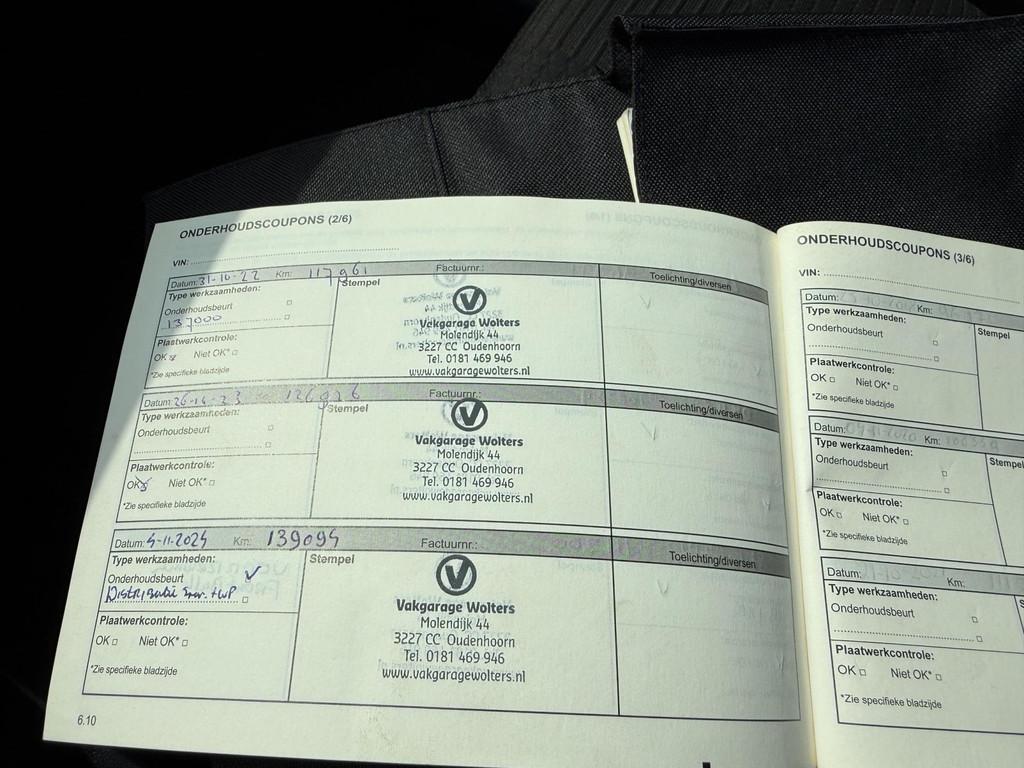 ONDERHOUDSCOUPONS (2/6)
VIN:
Datum: 31-10-22 Km: 117961 Factuurnr.: Toelichting/diversen
Type werkzaamheden: Stempel
Onderhoudsbeurt
137000
Plaatwerkcontrole:
OK Niet OK*
*Zie specifieke bladzijde
Vakgarage Wolters
Molendijk 44
3227 CC Oudenhoorn
Tel. 0181 469 946
www.vakgaragewolters.nl
Datum: Factuurnr.: Toelichting/diversen
Type werkzaamheden: Stempel
Onderhoudsbeurt
Plaatwerkcontrole:
OK Niet OK*
*Zie specifieke bladzijde
Vakgarage Wolters
Molendijk 44
3227 CC Oudenhoorn
Tel. 0181 469 946
www.vakgaragewolters.nl
Datum: Km: Factuurnr.: Toelichting/diversen
Type werkzaamheden: Stempel
Onderhoudsbeurt
Distributie
Plaatwerkcontrole:
OK Niet OK*
*Zie specifieke bladzijde
Vakgarage Wolters
Molendijk 44
3227 CC Oudenhoorn
Tel. 0181 469 946
www.vakgaragewolters.nl
6.10
ONDERHOUDSCOUPONS (3/6)
VIN:
Datum: Km:
Type werkzaamheden: Stempel
Onderhoudsbeurt
Plaatwerkcontrole:
OK Niet OK*
*Zie specifieke bladzijde
Datum: Km:
Type werkzaamheden: Stempel
Onderhoudsbeurt
Plaatwerkcontrole:
OK Niet OK*
*Zie specifieke bladzijde
Datum: Km:
Type werkzaamheden:
Onderhoudsbeurt
Plaatwerkcontrole:
OK Niet OK*
*Zie specifieke bladzijde